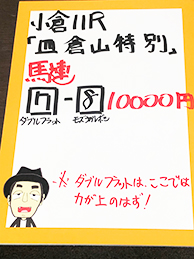 小倉11R
「皿倉山特別」
馬連
7-8 10000円
ダブルフラット モズラガレボシ
※ ダブルフラットは、ここでは
力が上のはず!